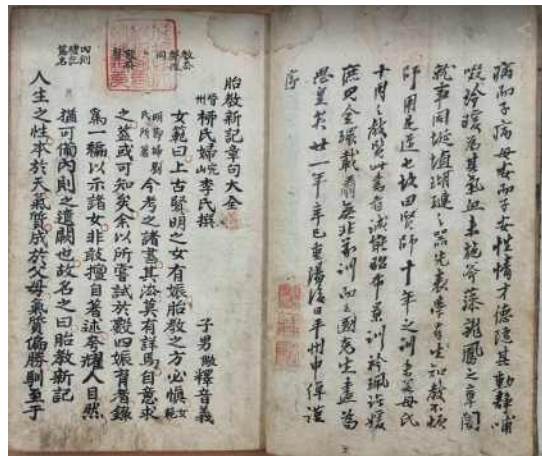 病而子病母安而子安性情才德隨其動靜哺
啜冷暖爲其氣血未施斧藻龍鳳之章闇
就事同埏埴瑚璉之器先表學有生知教不煩
師用是道也故曰賢師十年之訓未若母氏
十月之教覽此書有減撰昭布景訓衿珮諸媛
庶心全環載肅無非若訓而之國克生盡爲
思皇矣廿一年辛巳重陽後日平州申綽謹
序
胎敎新記章句大全
晉州柳氏婦完山李氏撰 子男儆釋音義
女範曰上古賢明之女有娠胎敎之方必愼女範
明節婦劉氏所著今考之諸書其法莫有詳焉自意求
之蓋或可知矣余以所嘗試於數四娠育者錄
爲一編以示諸女非敢擅自著述夸耀人目然
猶可備內則之遺闕也故名之曰胎敎新記
內則禮記篇名
人生之性本於天氣質成於父母氣質偏勝馴至于